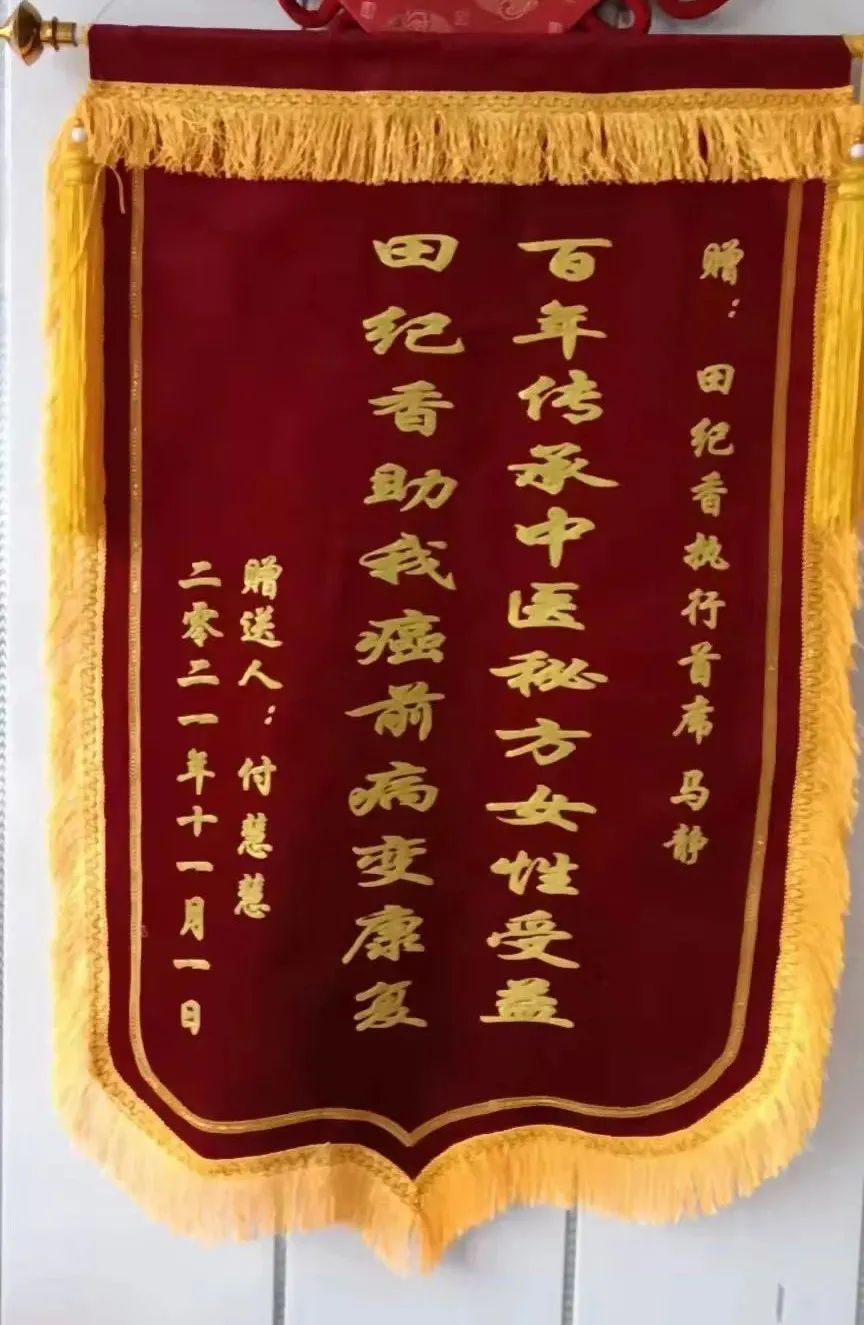 赠：田纪香执行首席 马静
百年传承中医秘方女性受益
田纪香助我癌前病变康复
赠送人：付慧慧
二零二一年十一月一日